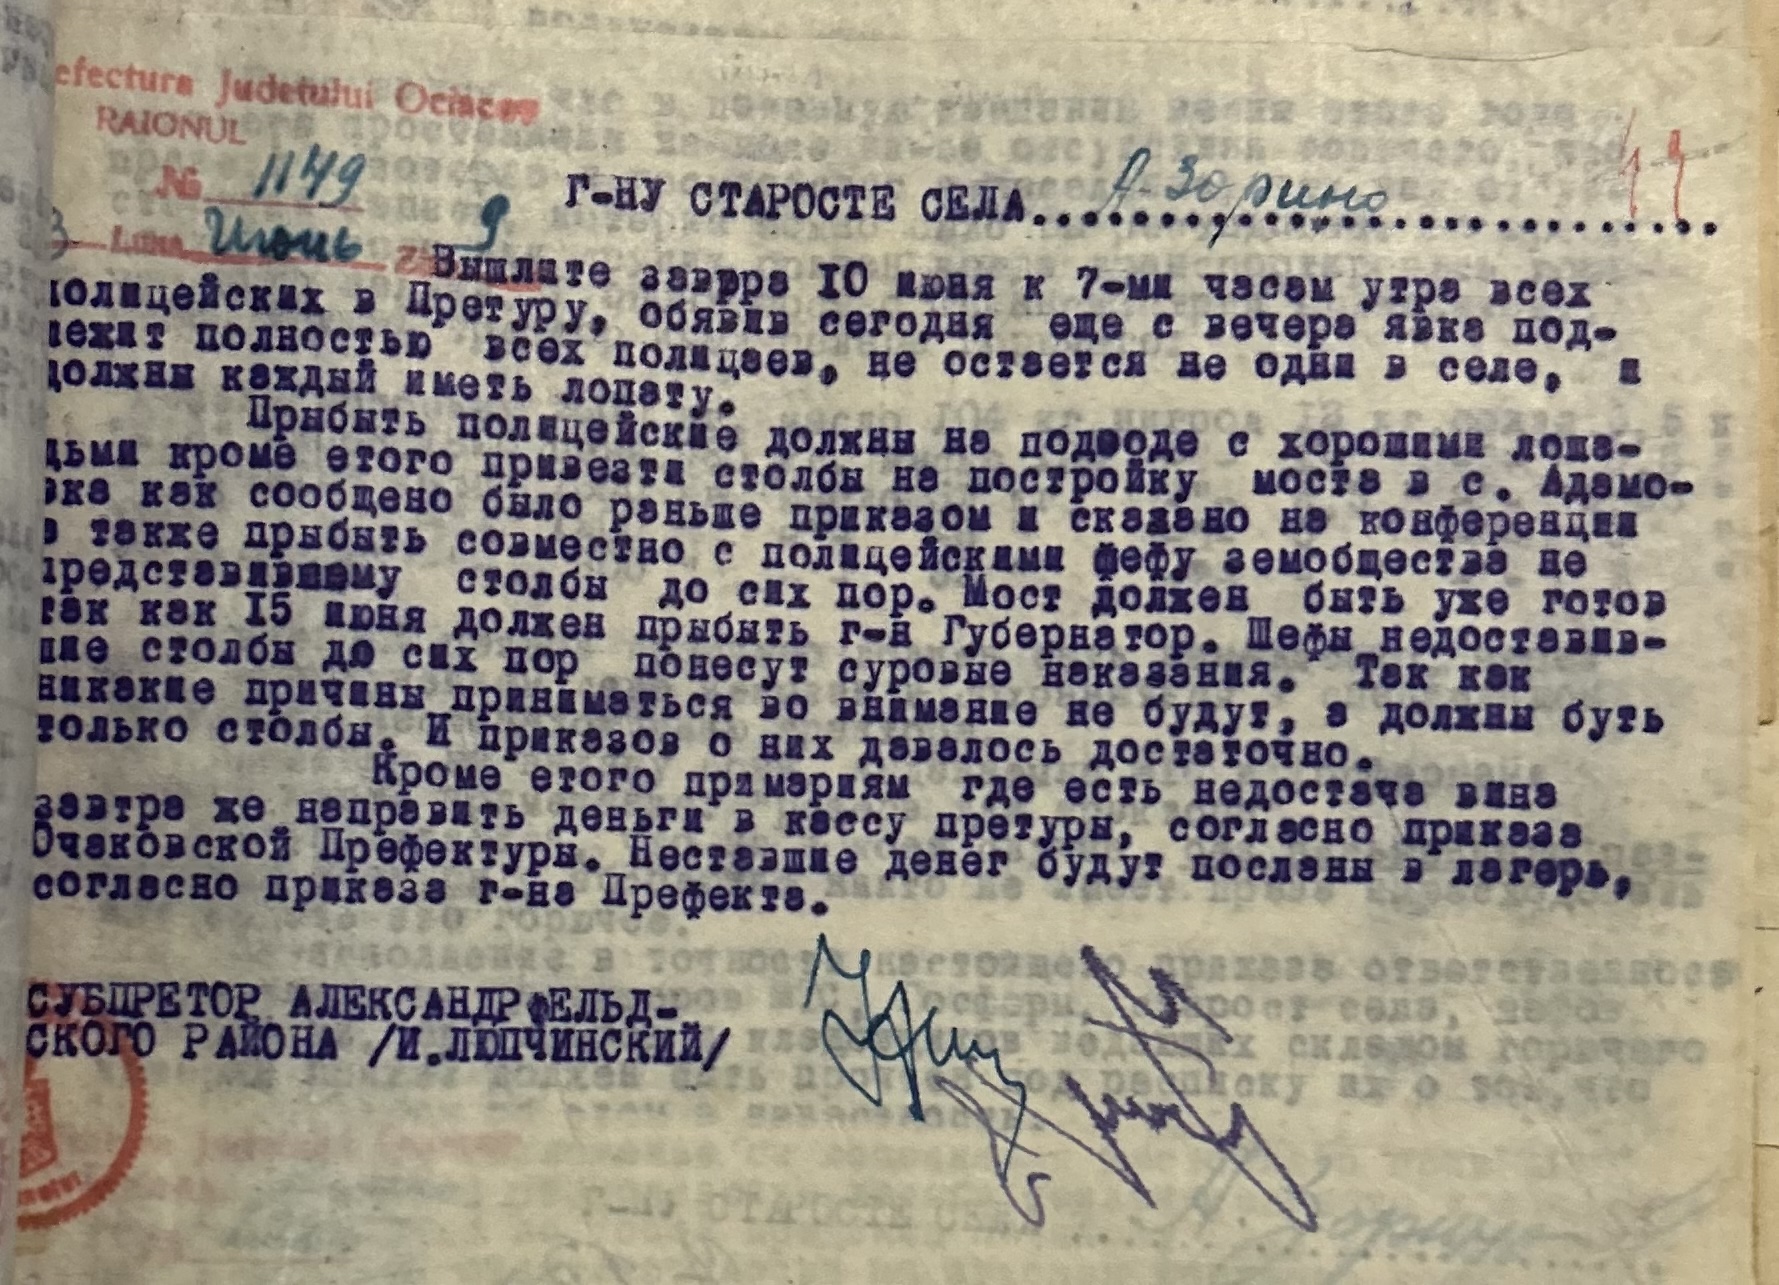 efectura Judetului Ociacov
RAIONUL
№ 1149
Г-НУ СТАРОСТЕ СЕЛА А-Зорино
3 LUNA Июнь 9
Вышлите завтра 10 июня к 7-ми часам утра всех
полицейских в Претуру, обявив сегодня еще с вечера явка под-
лежит полностью всех полицаев, не остается не одни в селе, и
должны каждый иметь лопату.
Прыбыть полицейские должны на подводе с хорошими лоша-
дьми кроме етого привезти столбы на постройку моста в с. Адамо-
вка как сообщено было раньше приказом и сказано на конференции
а также прыбыть совместно с полицейскими фефу земобщества не
представившему столбы до сих пор. Мост должен быть уже готов
так как 15 июня должен прыбыть г-н Губернатор. Шефы недоставив-
шие столбы до сих пор понесут суровые наказания. Так как
никакие причины приниматься во внимание не будут, а должны буть
только столбы. И приказов о них давалось достаточно.
Кроме етого примариям где есть недостача вина
завтра же направить деньги в кассу претуры, согласно приказа
Очаковской Префектуры. Неставшие денег будут посланы в лагерь,
согласно приказа г-на Префекта.
СУБПРЕТОР АЛЕКСАНДРФЕЛЬД-
СКОГО РАЙОНА /И.ЛЮПЧИНСКИЙ/